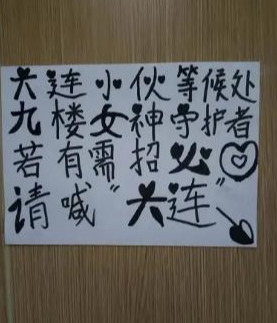 大连小伙等候处
九楼女神守护者
若有需招必
请喊"大连"